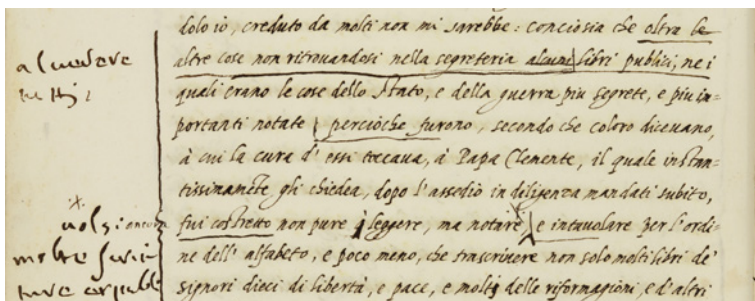 dolo io, creduto da molti non mi sarebbe: conciosia che oltra le
altre cose non ritrovandosi nella segreteria alcuni libri publici, ne i
quali erano le cose dello stato, e della guerra piu segrete, e piu im=
portanti notate percioche furono, secondo che coloro dicevano,
à cui la cura d'essi toccava, à Papa Clemente, il quale instan=
tissimamẽte gli chiedea, dopo l'assedio in diligenza mandati subito,
fui costretto non pure à leggere, ma notare, e intavolare per l'ordi=
ne dell'alfabeto, e poco meno, che trascrivere non solo molti libri de'
signori dieci di libertà, e pace, e molti delle riformagioni, e d'altri
a
tutti
volsi ancora
molte scrit
ture